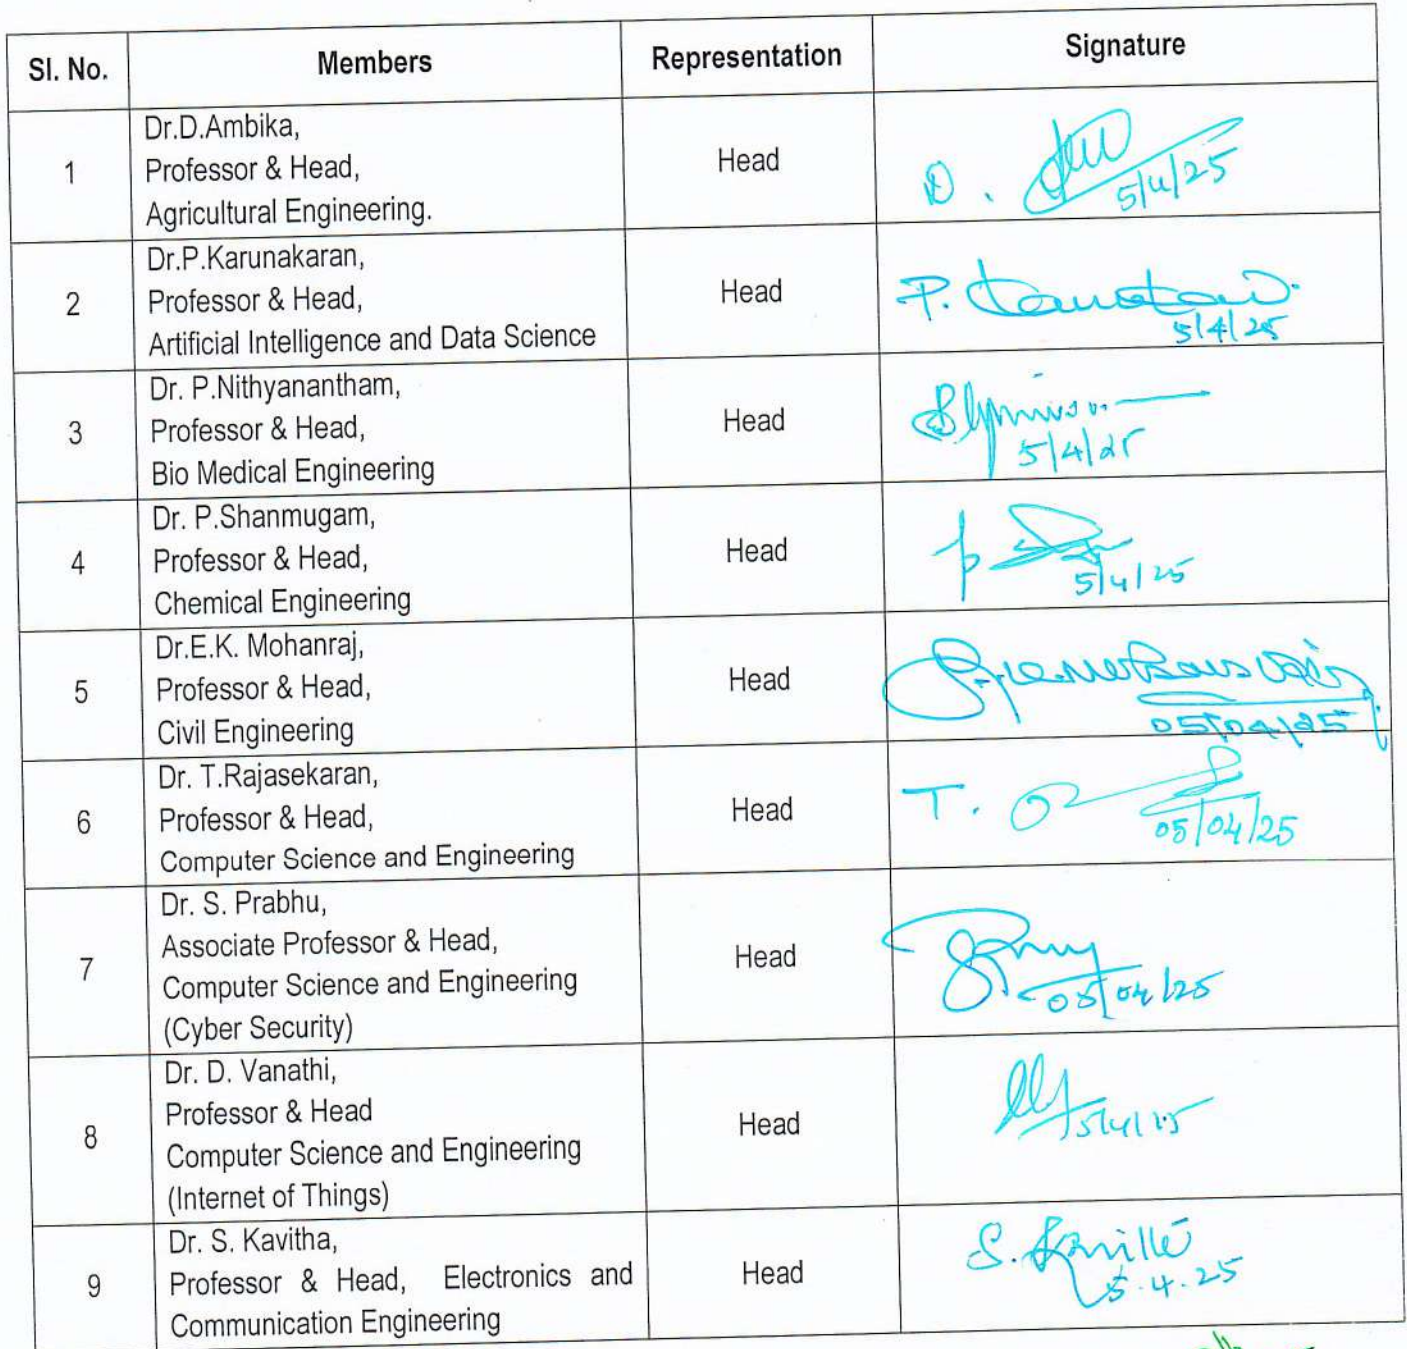 Sl. No. Members Representation Signature
1 Dr.D.Ambika, Head
Professor & Head,
Agricultural Engineering.
D. 5/4/25
2 Dr.P.Karunakaran, Head
Professor & Head,
Artificial Intelligence and Data Science
P. 5/4/25
3 Dr. P.Nithyanantham, Head
Professor & Head,
Bio Medical Engineering
5/4/25
4 Dr. P.Shanmugam, Head
Professor & Head,
Chemical Engineering
5/4/25
5 Dr.E.K. Mohanraj, Head
Professor & Head,
Civil Engineering
05/04/25
6 Dr. T.Rajasekaran, Head
Professor & Head,
Computer Science and Engineering
T. 05/04/25
7 Dr. S. Prabhu, Head
Associate Professor & Head,
Computer Science and Engineering
(Cyber Security)
05/04/25
8 Dr. D. Vanathi, Head
Professor & Head
Computer Science and Engineering
(Internet of Things)
5/4/25
9 Dr. S. Kavitha, Head
Professor & Head, Electronics and
Communication Engineering
S. 5.4.25